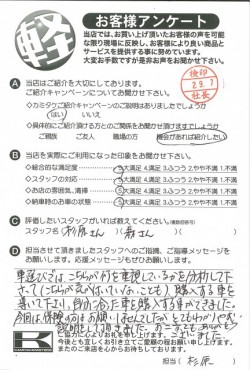 軽
お客様アンケート
当店では、お買い上げ頂いたお客様の声を可能
な限り現場に反映し、お客様により良い商品と
サービスを提供する事に努めています。
大変お手数ですが是非お声をお聞かせ下さい。
検印
社長
A 当店はご紹介を大切にしております。
ご紹介キャンペーンについてお聞かせ下さい。
◇カミタケご紹介キャンペーンのご説明はありましたでしょうか
はい いいえ
◇具体的にご紹介頂ける方とのご関係をお聞かせ頂けますでしょうか
ご親族 ご友人 職場の方 機会があれば紹介したい
B 当店を実際にご利用になった印象をお聞かせ下さい。
◇総合的な満足度 5大満足 4.満足 3.ふつう 2.やや不満 1.不満
◇スタッフの対応 5大満足 4.満足 3.ふつう 2.やや不満 1.不満
◇お店の雰囲気、清掃 5大満足 4.満足 3.ふつう 2.やや不満 1.不満
◇納車時のお車の状態 5大満足 4.満足 3.ふつう 2.やや不満 1.不満
C 評価したいスタッフがいれば教えてください。(複数回答可)
スタッフ名( 杉原さん さん )
D 担当させて頂きましたスタッフへのご指摘、ご応援メッセージを
お願いします。応援メッセージもお願いします。
車選びでは、こちらが何を重視しているかを分析して下
さって(こちらが気が付いていないことも)購入する車を
導いて下さり、自分に合った車を購入する事ができました。
ご協力に心よりお礼を申し上げます。
今後とも宜しくお引き立てご愛顧の程お願い申し上げます。
またのご来店を心からお待ちしております。
担当( 杉原 )